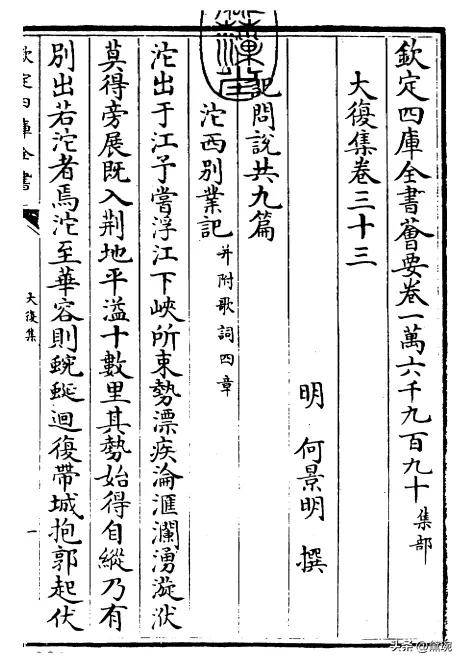 欽定四庫全書薈要卷一萬六千九百九十 集部
大復集卷三十三
明 何景明 撰
記問說共九篇
沱西別業記 并附歌詞四章
沱出于江予嘗浮江下峽所束勢漂疾淪滙瀾湧漩洑
莫得旁展既入荆地平溢十數里其勢始得自縱乃有
別出若沱者焉沱至華容則蜿蜒迴復帶城抱郭起伏
欽定四庫全書
大復集
一
头条@黛琬